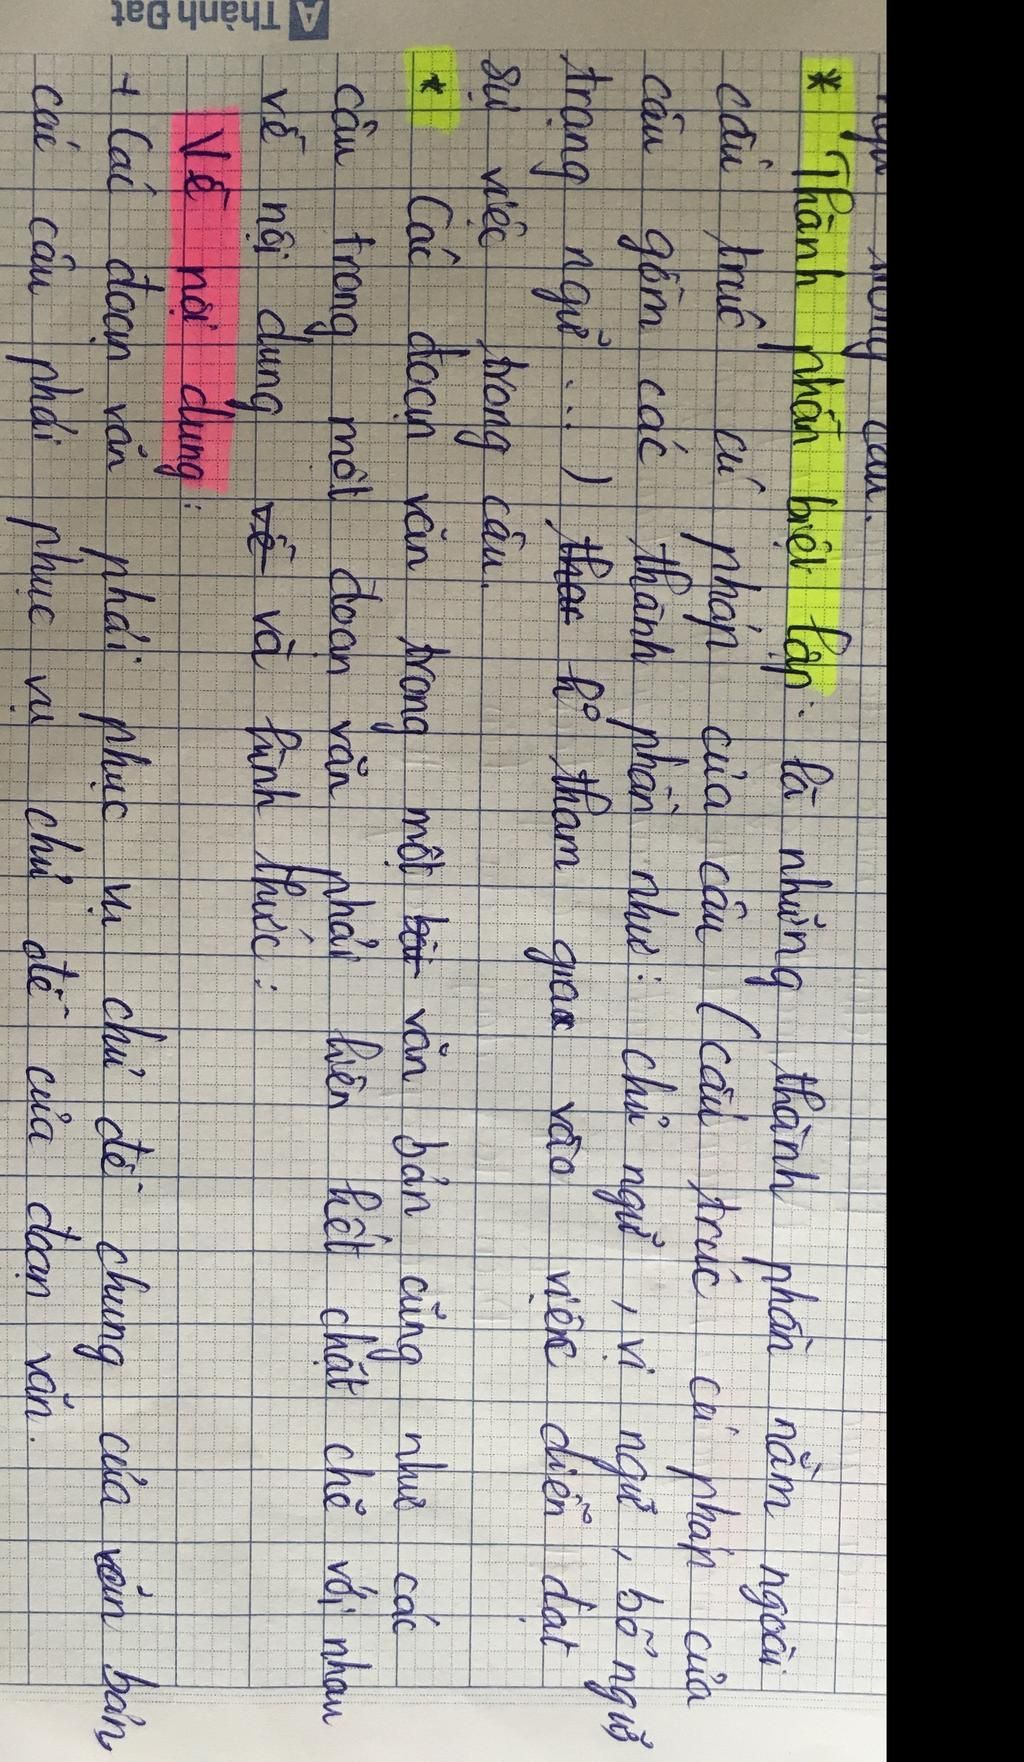 trong câu.
* Thành phần biệt lập: là những thành phần nằm ngoài
cấu trúc cú pháp của câu (cấu trúc cú pháp của
câu gồm các thành phần như: chủ ngữ, vị ngữ, bổ ngữ
trạng ngữ...) tham gia vào việc diễn đạt
sự việc trong câu.
* Các đoạn văn trong một văn bản cũng như các
câu trong một đoạn văn phải liên kết chặt chẽ với nhau
về nội dung và hình thức:
Về nội dung:
+ Các đoạn văn phải phục vụ chủ đề chung của văn bản,
các câu phải phục vụ chủ đề của đoạn văn.
Thành Đạt